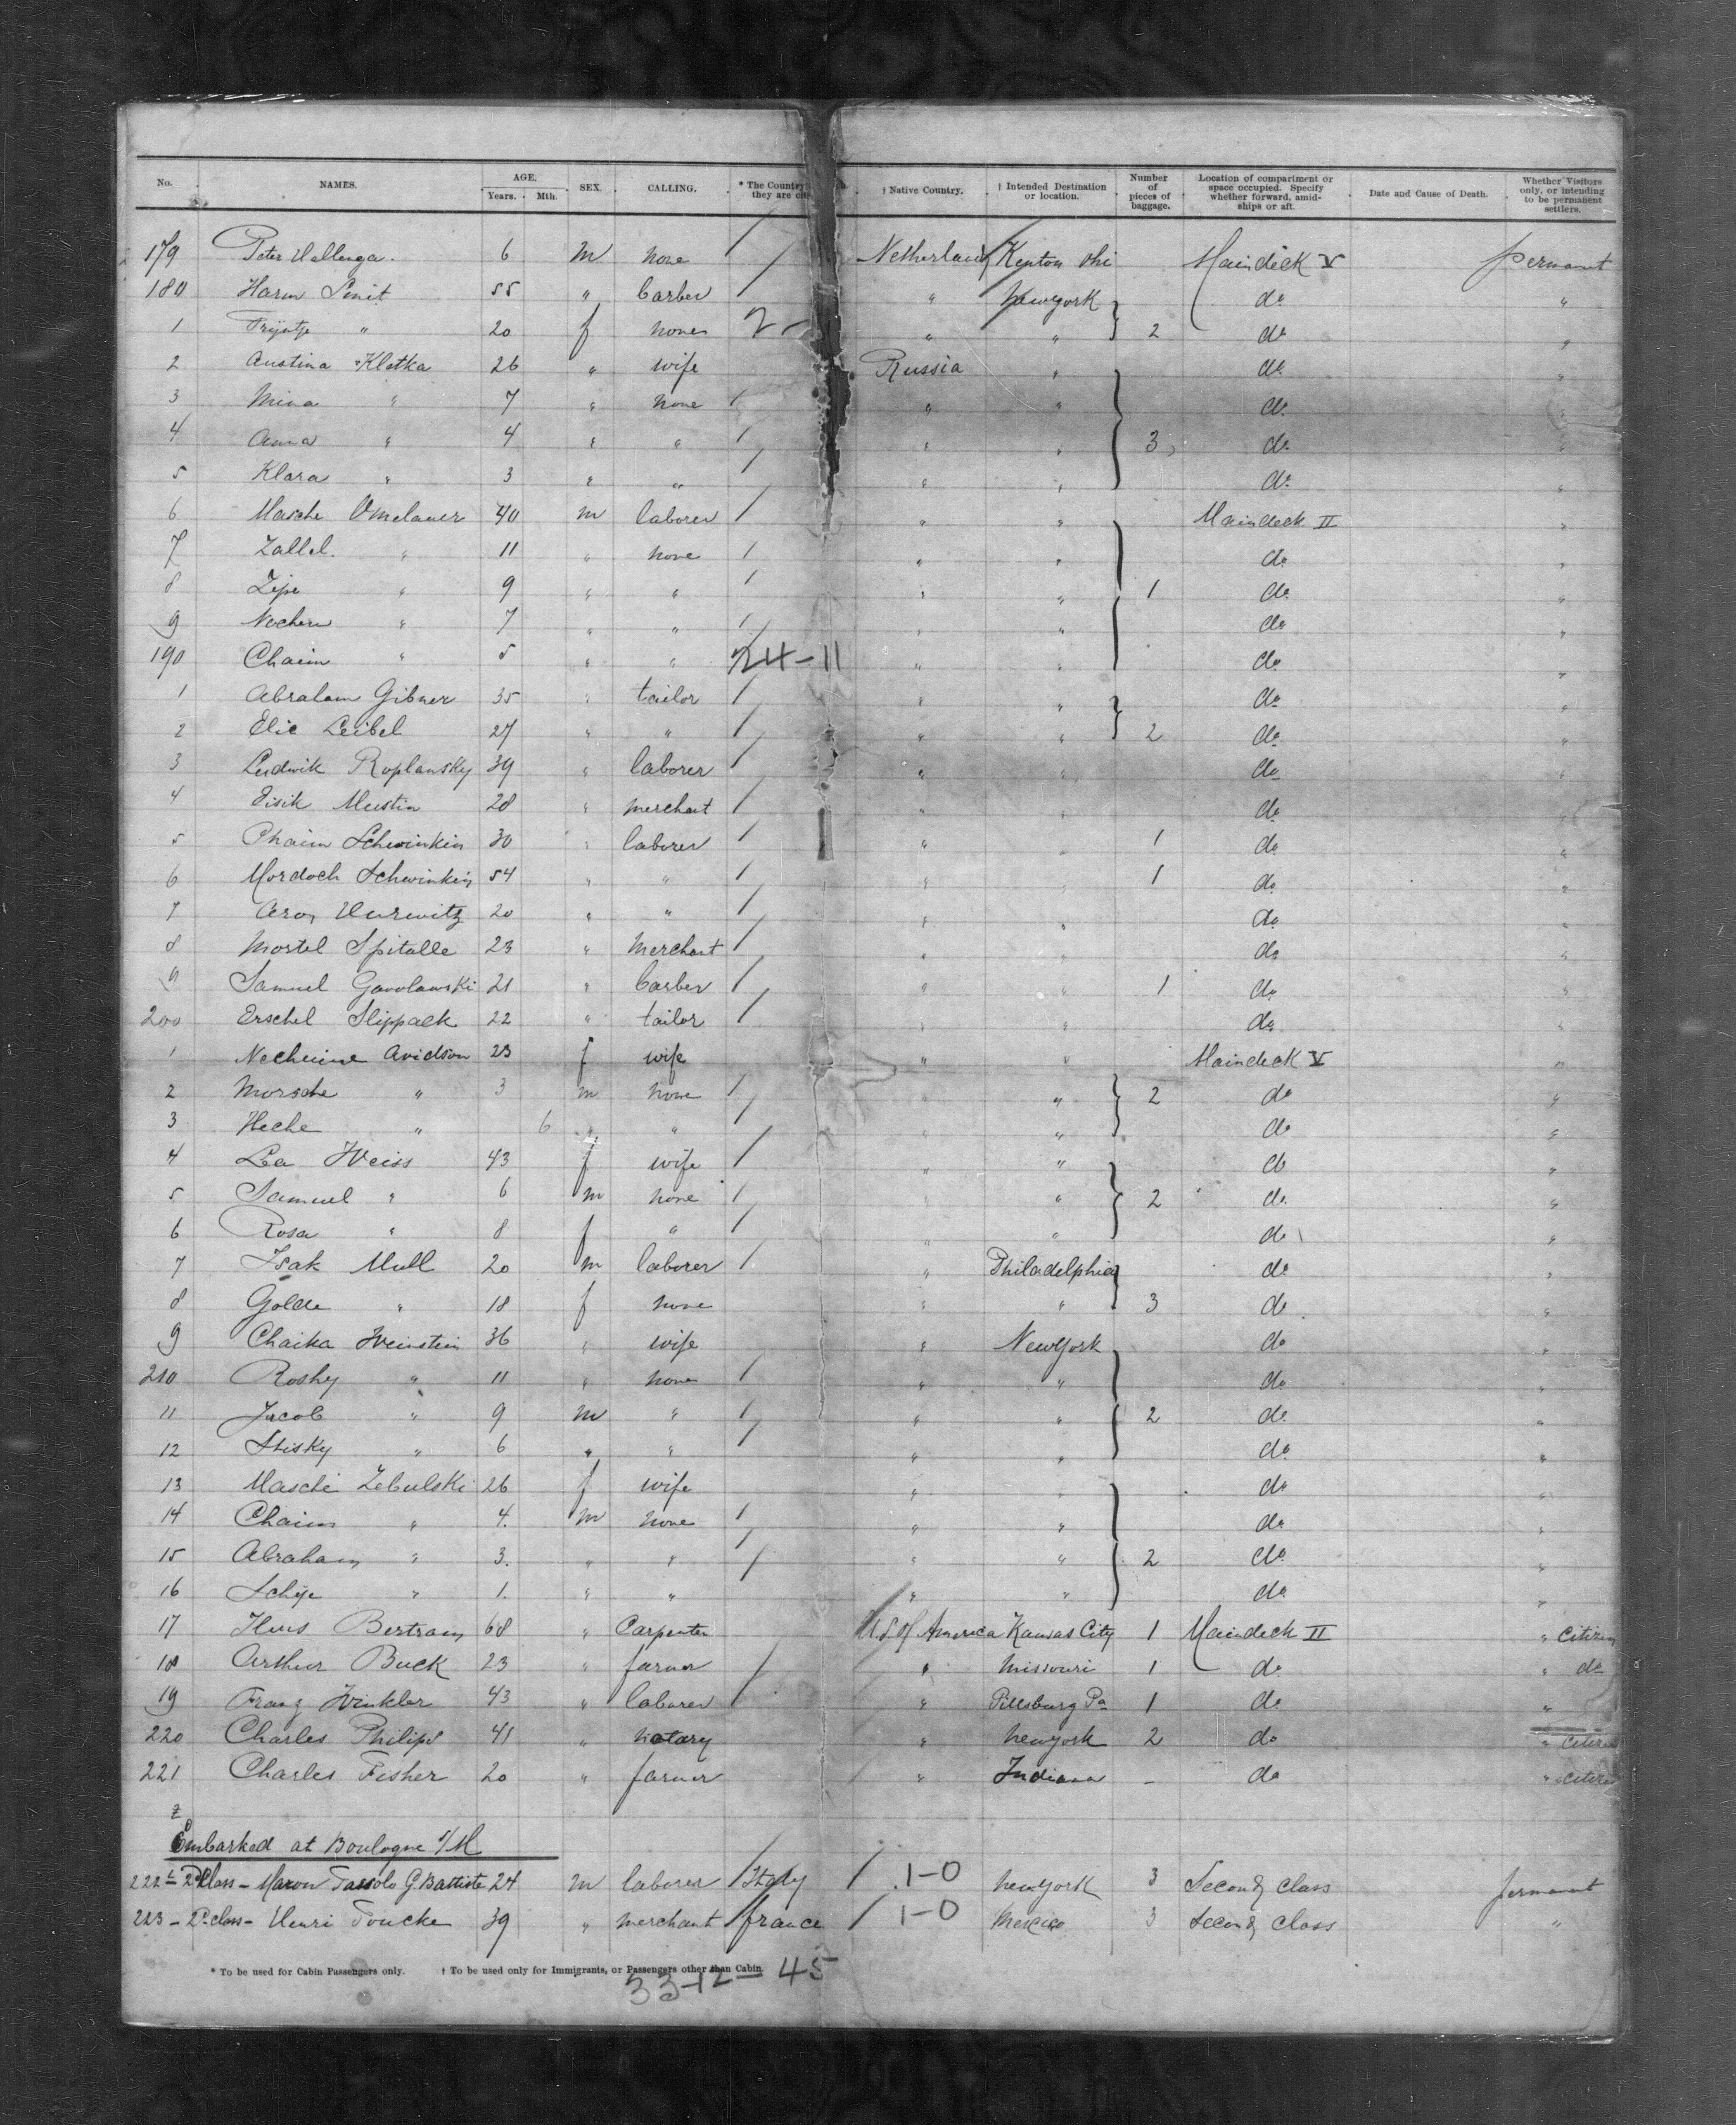 No. NAMES. AGE. Years. Mth. SEX. CALLING. * The Country they are † Native Country. † Intended Destination or location. Number of pieces of baggage. Location of compartment or space occupied. Specify whether forward, amidships or aft. Date and Cause of Death. Whether Visitors only, or intending to be permanent settlers.
179 Peter Wallenga. 6 m none / Netherland Kenton Ohi Maindeck V permant
180 Harm Smit 55 " barber / " New York do "
1 Trijntje " 20 f none 2 - " " 2 do "
2 Austina Klatka 26 " wife Russia " do "
3 Mina " 7 " none / " " do "
4 Anna " 4 " " / " " 3 do "
5 Klara " 3 " " / " " do "
6 Masche Omelauer 40 m laborer / " " Maindeck II "
7 Zallel. " 11 " none / " " do "
8 Zipe " 9 " " / " " 1 do "
9 Nochem " 7 " " / " " do "
190 Chaim " 5 " " 24-11 " " do "
1 Abraham Gibner 35 " tailor / " " do "
2 Elie Leibel 27 " " / " " 2 do "
3 Ludwik Roplansky 39 " laborer / " " do "
4 Eisik Mustin 28 " merchant / " " do "
5 Chaim Schwinkin 30 " laborer / " " 1 do "
6 Mordoch Schwinkin 54 " " / " " 1 do "
7 Aron Hurwitz 20 " " / " " do "
8 Mortel Spitalle 23 " merchant / " " do "
9 Samuel Gavolawski 21 " barber / " " 1 do "
200 Erschel Slippack 22 " tailor / " " do "
1 Nechume Avidson 23 f wife " " Maindeck V "
2 Morsche " 3 m none / " " 2 do "
3 Heche " 6 " " / " " do "
4 Lea Weiss 43 f wife / " " do "
5 Samuel " 6 m none / " " 2 do "
6 Rosa " 8 f " / " " do "
7 Isak Mull 20 m laborer / " Philadelphia do "
8 Golde " 18 f none " " 3 do "
9 Chaika Weinstein 36 " wife " New York do "
210 Roshy " 11 " none / " " do "
11 Jacob " 9 m " / " " 2 do "
12 Stisky " 6 " " / " " do "
13 Masche Zebulski 26 f wife " " do "
14 Chaim " 4. m none / " " do "
15 Abraham " 3. " " / " " 2 do "
16 Schije " 1. " " " " do "
17 Bertram 68 " Carpenter U S of America Kansas City 1 Maindeck II " citizen
18 Arthur Buck 23 " farmer / " Missouri 1 do " do
19 Franz Winkler 43 " laborer / " Pittsburg Pa 1 do "
220 Charles Philips 41 " notary " New york 2 do " citizen
221 Charles Fisher 20 " farmer " Indiana - do " citizen
Embarked at Boulogne s/M
222 - 2d Class - Maron Tassolo G. Battiste 24 m laborer / Italy / 1-0 New york 3 Second class permanent
223 - 2d class - Henri Foucke 39 " merchant / france / 1-0 Mexico 3 Second class "
* To be used for Cabin Passengers only. † To be used only for Immigrants, or Passengers other than Cabin.
33-12-45